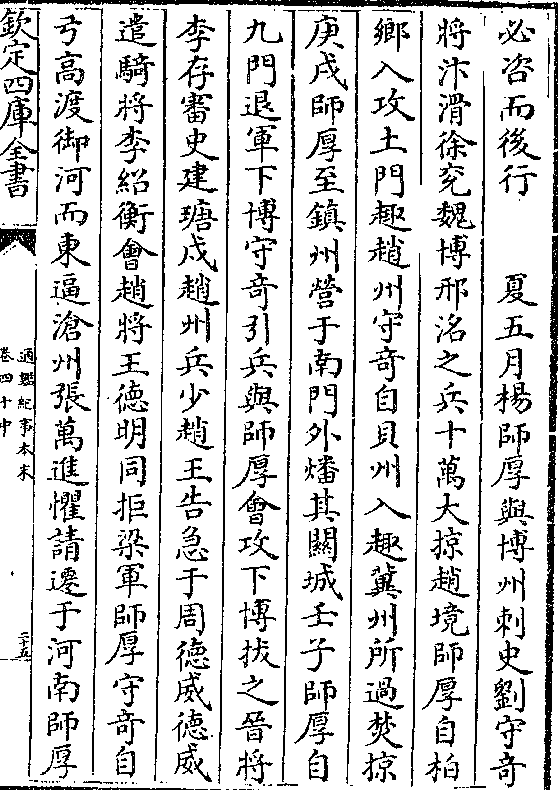 必咨而後行　夏五月楊師厚與博州刺史劉守奇
將汴滑徐兗魏博邢洺之兵十萬大掠趙境師厚自柏
鄉入攻土門趣趙州守奇自貝州入趣冀州所過焚掠
庚戌師厚至鎮州營于南門外燔其關城壬子師厚自
九門退軍下博守奇引兵與師厚會攻下博拔之晉將
李存審史建瑭戍趙州兵少趙王告急于周德威德威
遣騎將李紹衡會趙將王德明同拒梁軍師厚守奇自
弓高渡御河而東逼滄州張萬進懼請遷于河南師厚
欽定四庫全書
通鑑紀事本末
卷四十中
二十五